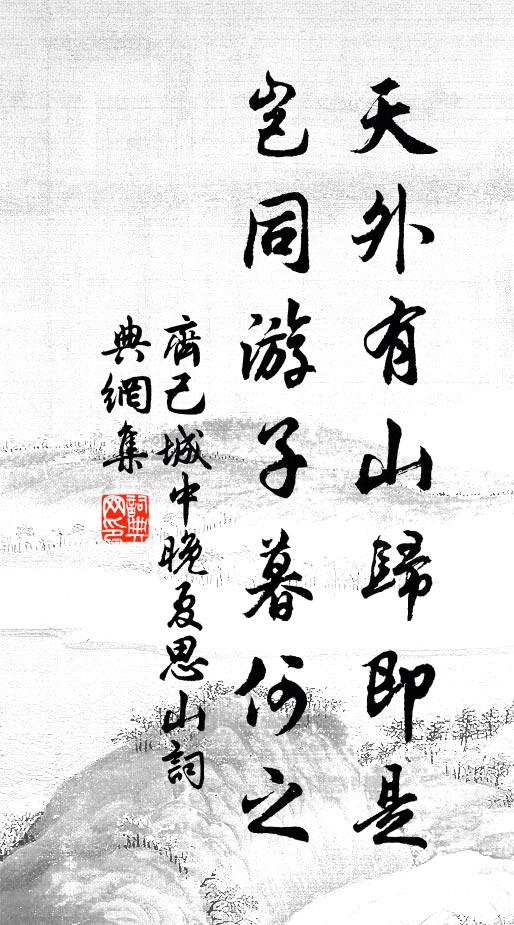 天外有山歸即是
豈同游子暮何之
齊己城中晚夏思山詞
典網集
詞典
网印